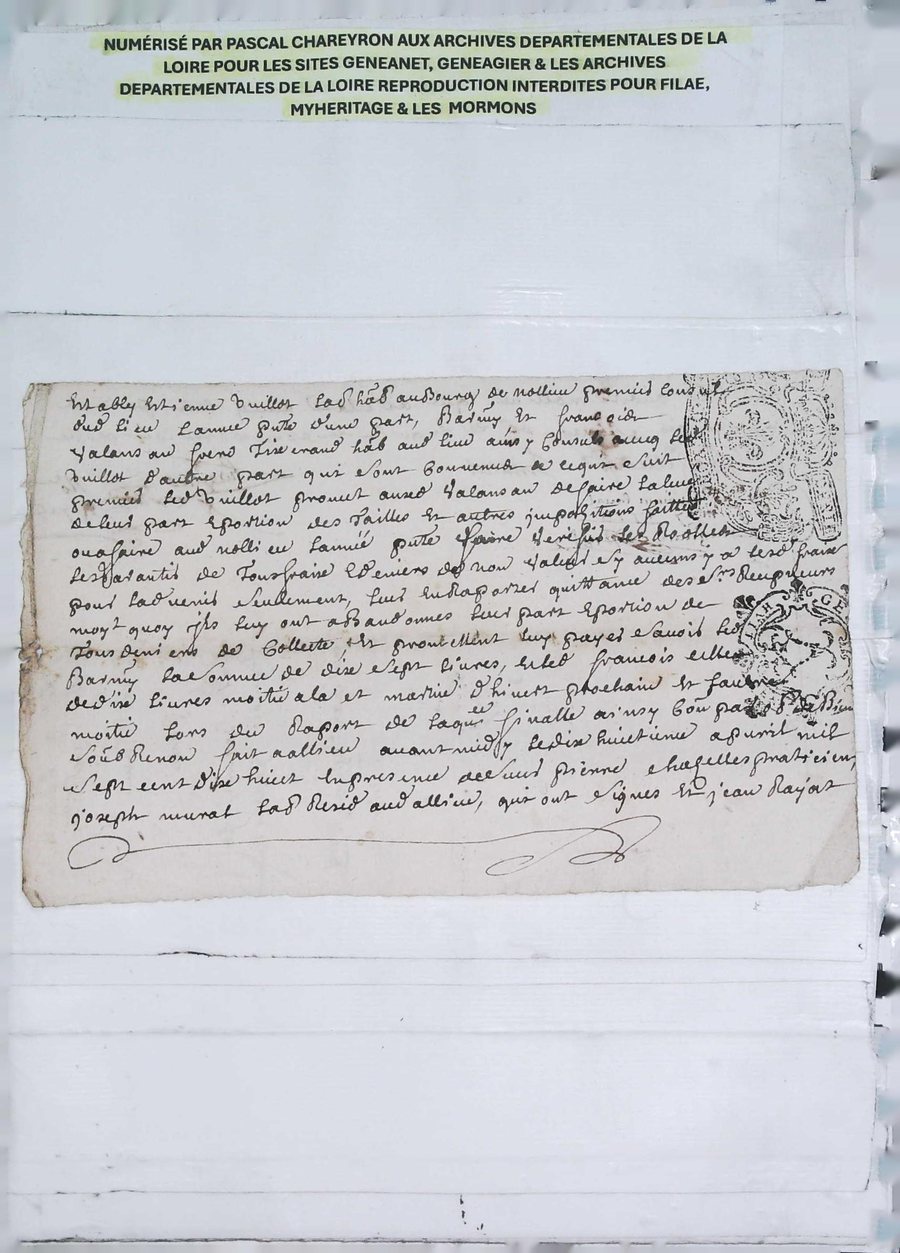 NUMÉRISÉ PAR PASCAL CHAREYRON AUX ARCHIVES DEPARTEMENTALES DE LA
LOIRE POUR LES SITES GENEANET, GENEAGIER & LES ARCHIVES
DEPARTEMENTALES DE LA LOIRE REPRODUCTION INTERDITES POUR FILAE,
MYHERITAGE & LES MORMONS
Estably Estienne Vuillot lab hab au Bourg de nollieu premier Consul
dud lieu Lannee pnte d'une part, Barmy Et francois
Valansan frere Tixerand hab aud lieu ainsy Consuls avecq led
Vuillot d'autre part qui sont Convenus de ce qui suit
premier led Vuillot promet ausd Valansan de faire la
de leur part Eportion des Tailles Et autres impositions faittes
ou afaire aud nollieu Lannée pnte faire les Roolles
les garantir de Tous fraix Deniers de non Valeur sy aucuns y a
pour ladvenir seulement, leur En Raporter quittance des Srs
moyt quoy ils luy ont abandonnes leur part Eportion de
Tous deniers de Collecte Et promettent luy payer scavoir led
Barmy la somme de dix sept livres, et led francois celle
de dix livres moitie a la st martin d'hivert prochain Et
moitie lors du Raport de laquee finalle ainsy Con
Soub Renon fait a allieu avant midy le dix huitieme apvril mil
sept cent dix huict En presence de sieurs pierre Chapelles praticien,
joseph murat lab Resid aud allieu, qui ont signes Et jean Rajat
GE